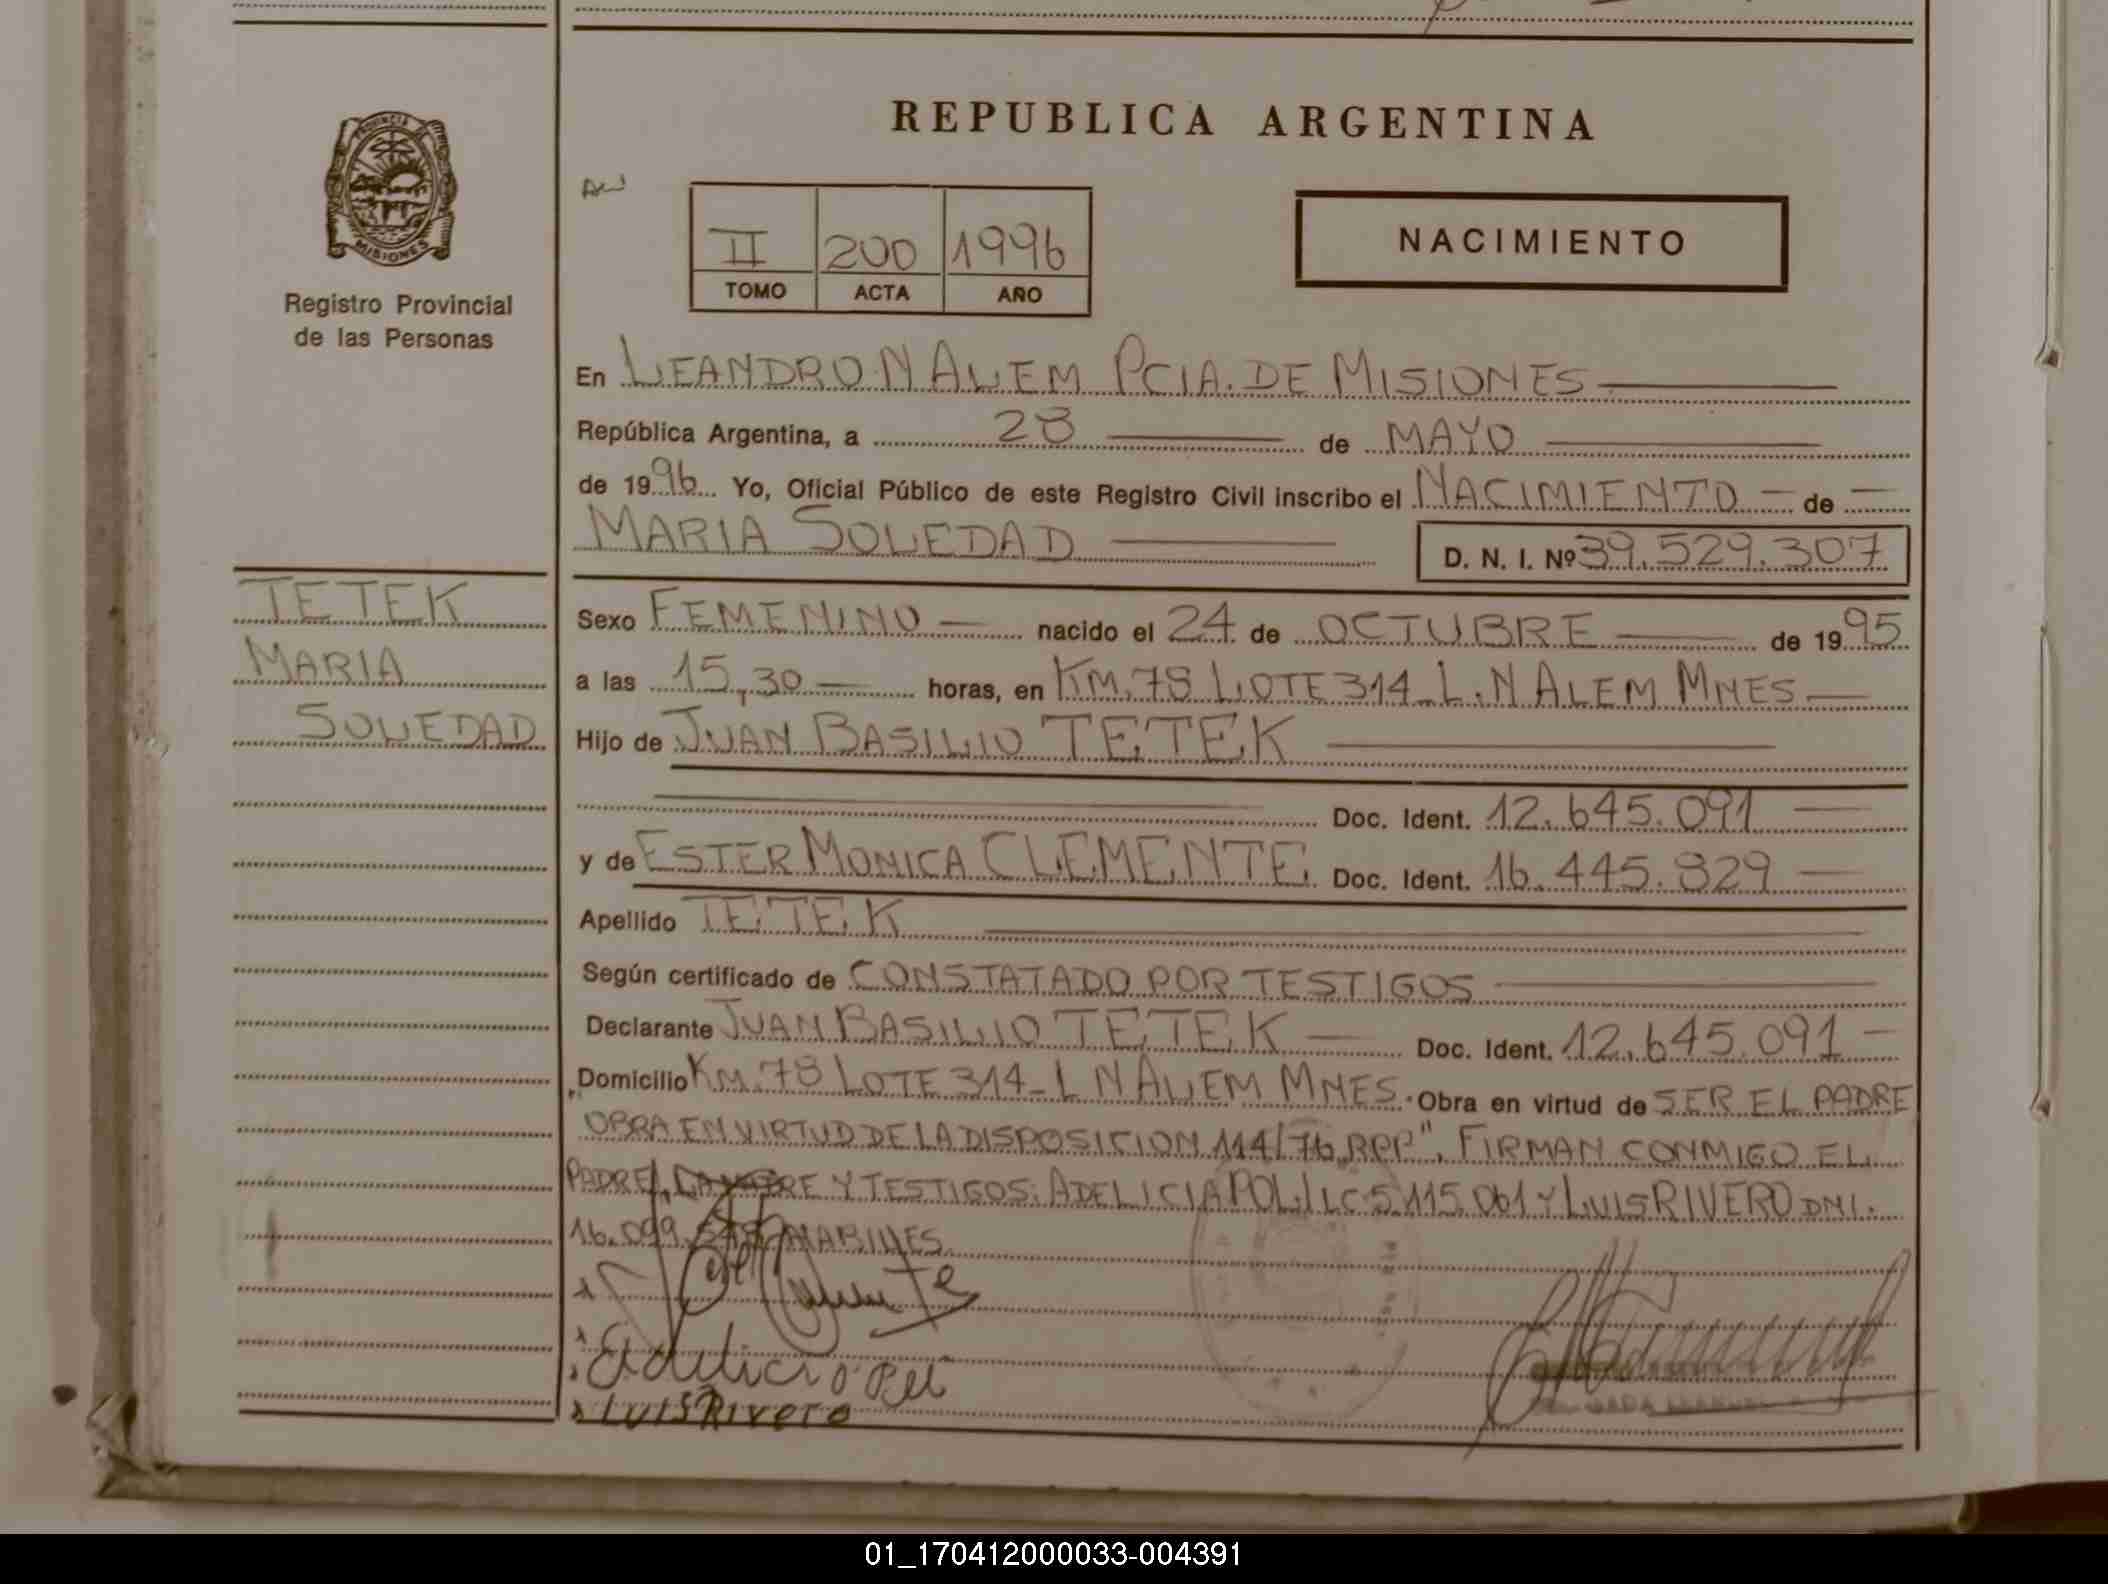 REPUBLICA ARGENTINA
PROVINCIA DE
MISIONES
Registro Provincial
de las Personas
II 200 1996
TOMO ACTA AÑO
NACIMIENTO
En LEANDRO N ALEM PCIA. DE MISIONES
República Argentina, a 28 de MAYO
de 1996 Yo, Oficial Público de este Registro Civil inscribo el NACIMIENTO de
MARIA SOLEDAD D. N. I. Nº 39.529.307
TETEK
MARIA
SOLEDAD
Sexo FEMENINO nacido el 24 de OCTUBRE de 1995
a las 15,30 horas, en KM. 78 LOTE 314_L. N ALEM MNES
Hijo de JUAN BASILIO TETEK
Doc. Ident. 12.645.091
y de ESTER MONICA CLEMENTE Doc. Ident. 16.445.829
Apellido TETEK
Según certificado de CONSTATADO POR TESTIGOS
Declarante JUAN BASILIO TETEK Doc. Ident. 12.645.091
Domicilio KM. 78 LOTE 314_L N ALEM MNES. Obra en virtud de SER EL PADRE
OBRA EN VIRTUD DE LA DISPOSICION 114/76 RPP". FIRMAN CONMIGO EL
PADRE, LA MADRE Y TESTIGOS: ADELICIA POL LC 5.115.061 Y LUIS RIVERO DNI.
16.099.
Luis Rivero
01_170412000033-004391